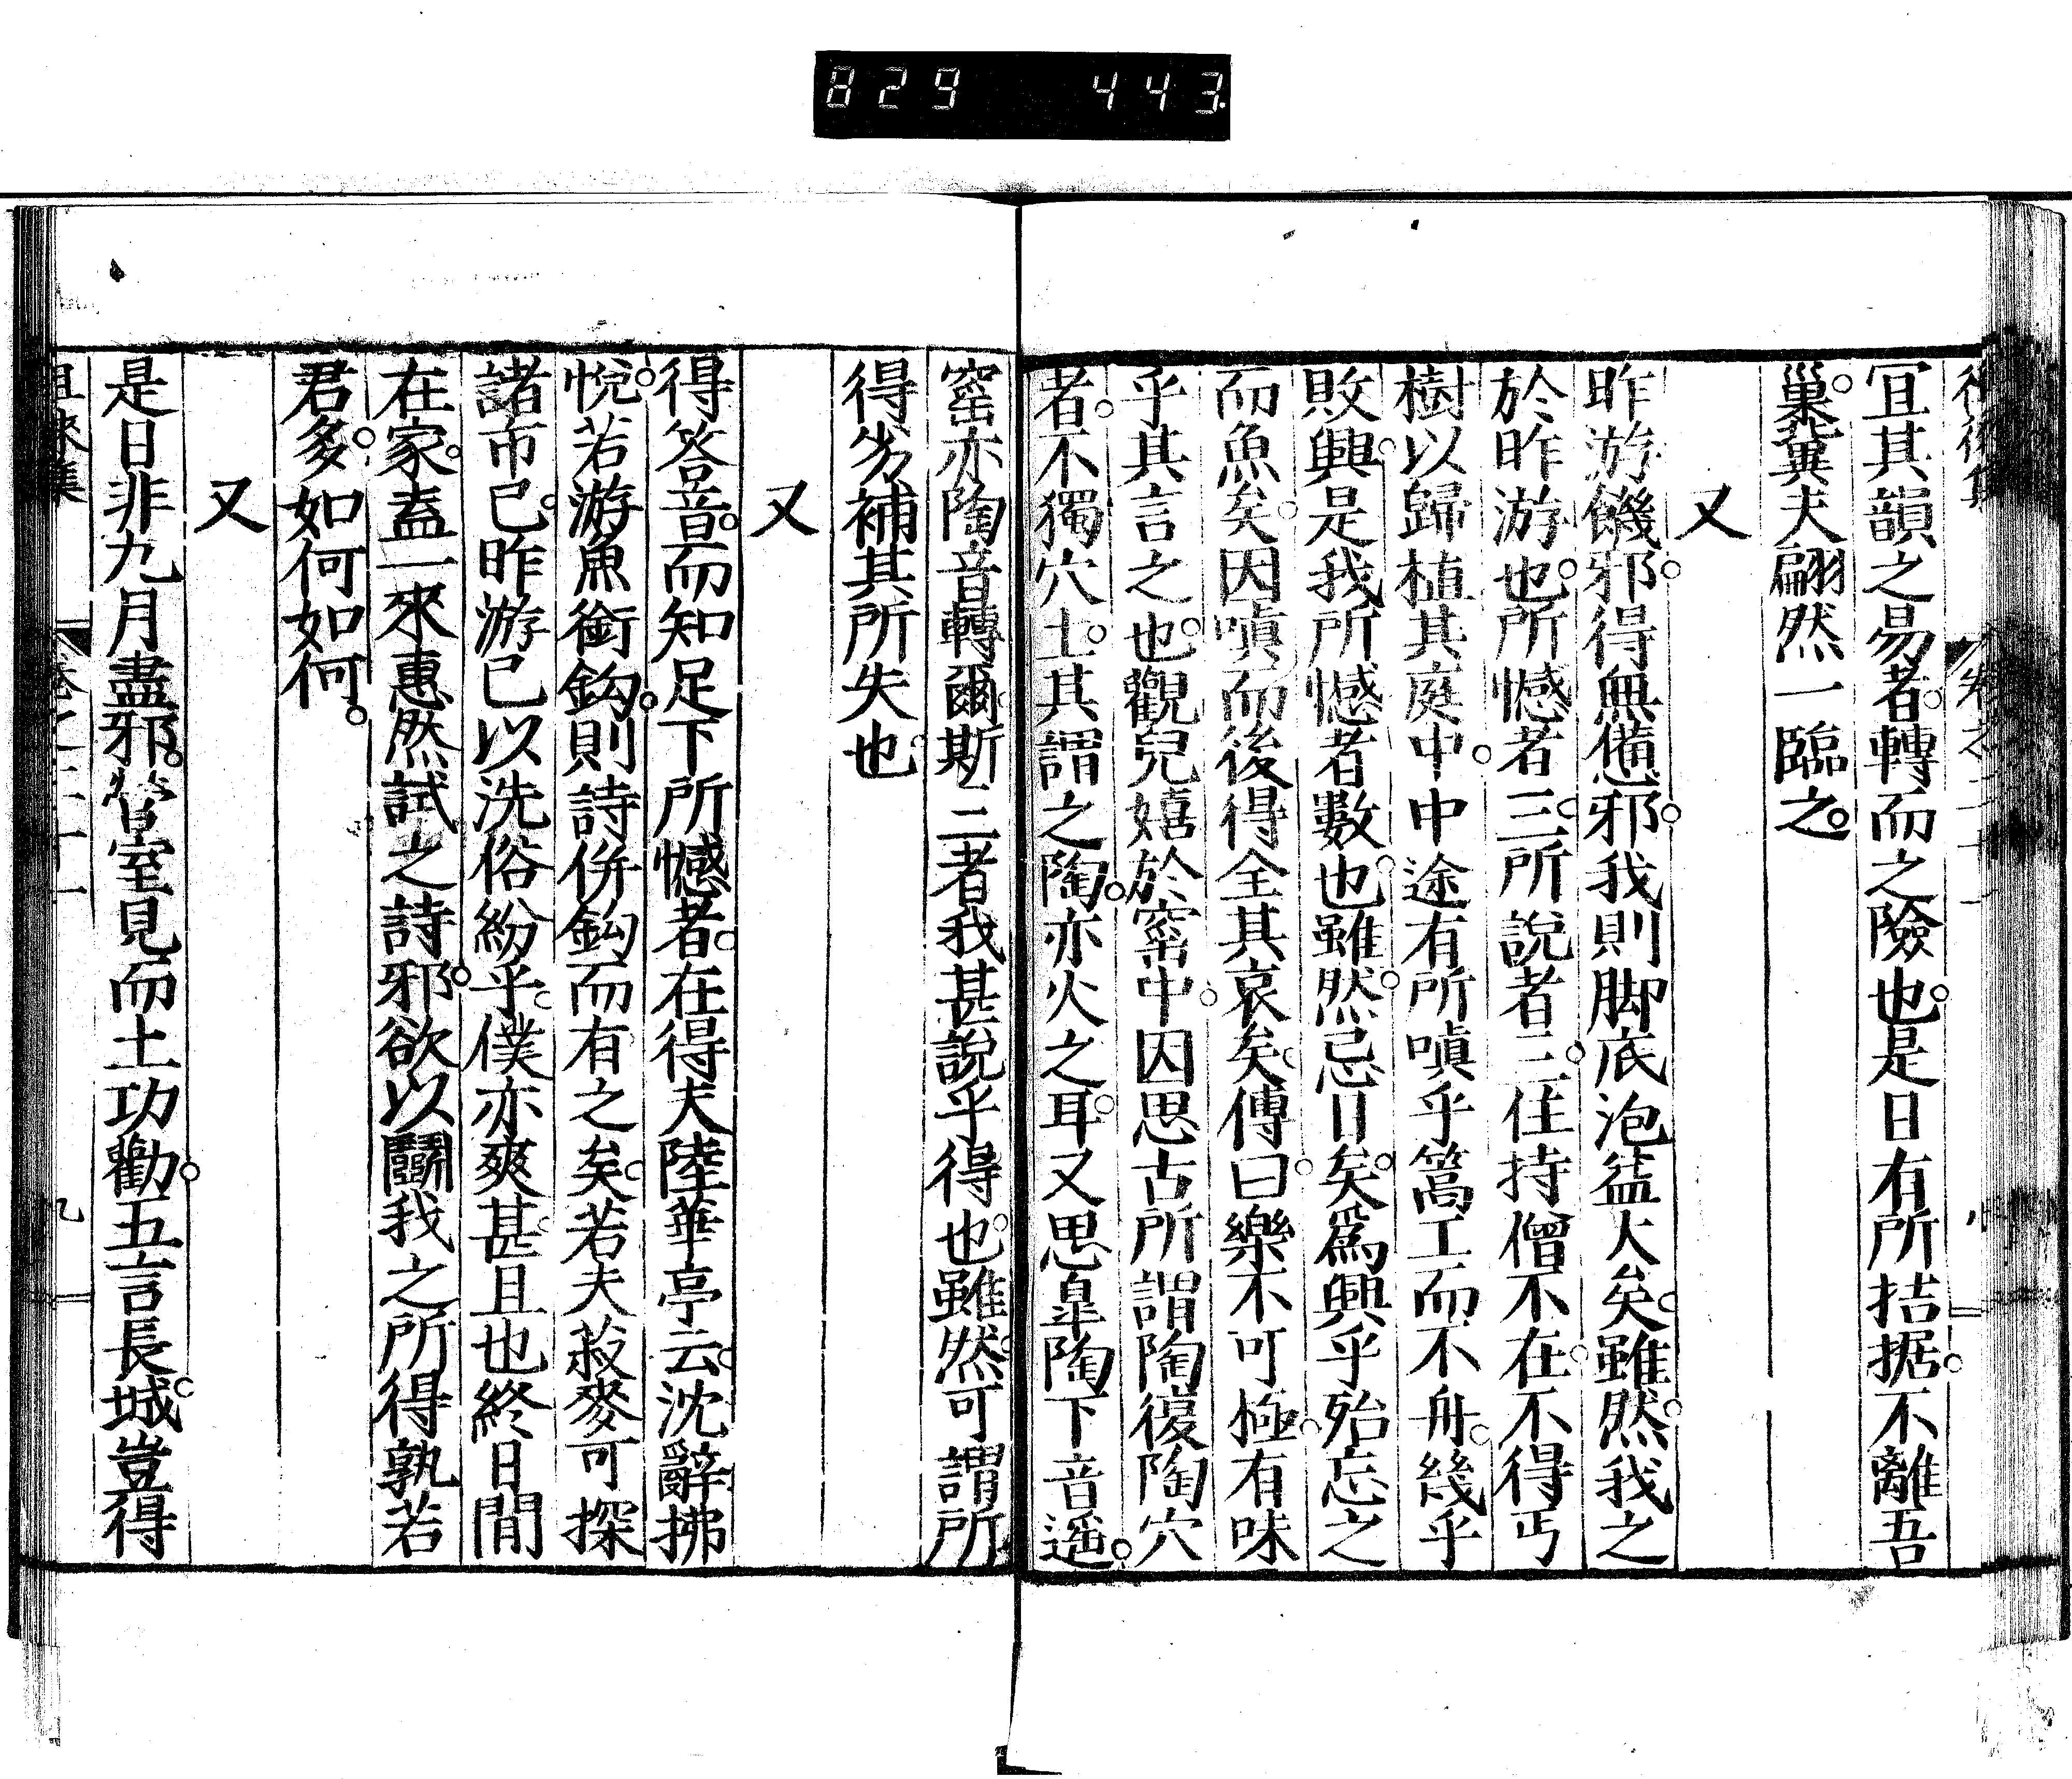 829 443
宜其韻之易者。轉而之險也。是日有所拮据。不離吾
巢。冀夫翩然一臨之。
又
昨游饑邪。得無憊邪。我則脚底泡益大矣。雖然。我之
於昨游也。所憾者三。所說者三。住持僧不在。不得丐
樹以歸植其庭中。中途有所嗔乎篙工而不舟。幾乎
敗興。是我所憾者數也。雖然。忌日矣。爲興乎殆忘之
而魚矣。因嗔而後得全其哀矣。傳曰。樂不可極。有味
乎其言之也。觀兒嬉於窰中。因思古所謂陶復陶穴
者。不獨穴土。其謂之陶。亦火之耳。又思皐陶下音遥。
窰亦陶音轉爾。斯三者我甚說乎得也。雖然。可謂所
得劣補其所失也。
又
得答音。而知足下所憾者。在得夫陸華亭云。沈辭拂
悅。若游魚銜鈎。則詩併鈎而有之矣。若夫菽麥可探
諸市已。昨游已以洗俗紛乎。僕亦爽甚。且也終日閒
在家。盍一來惠然試之詩邪。欲以鬭我之所得孰若
君多。如何如何。
又
是日非九月盡邪。營室見而土功勸。五言長城。豈得
徂徠集
卷之二十一
九